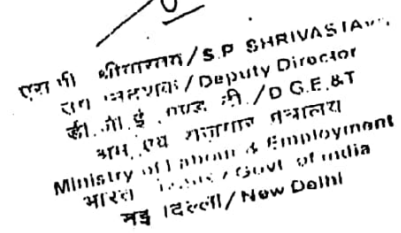 एस पी श्रीवास्तव/S.P SHRIVASTAV
उप निदेशक/Deputy Director
डी.जी.ई. एण्ड टी./D G.E.&T
श्रम एवं रोजगार मंत्रालय
Ministry of Labour & Employment
भारत /Govt of India
नई दिल्ली/New Delhi